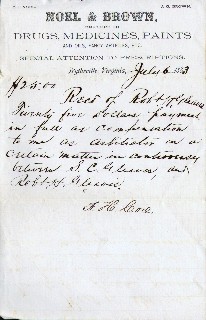 NOEL & BROWN,
DRUGS, MEDICINES, PAINTS
SPECIAL ATTENTION TO PRESCRIPTIONS.
Wytheville, Virginia, July 6 1883
$25.00 Recd of Robt
Twenty five Dollars payment
in full as compensation
to me as arbitrator in a
certain matter in controversy
between S. C. Gleaves and
Robt. H. Gleaves.